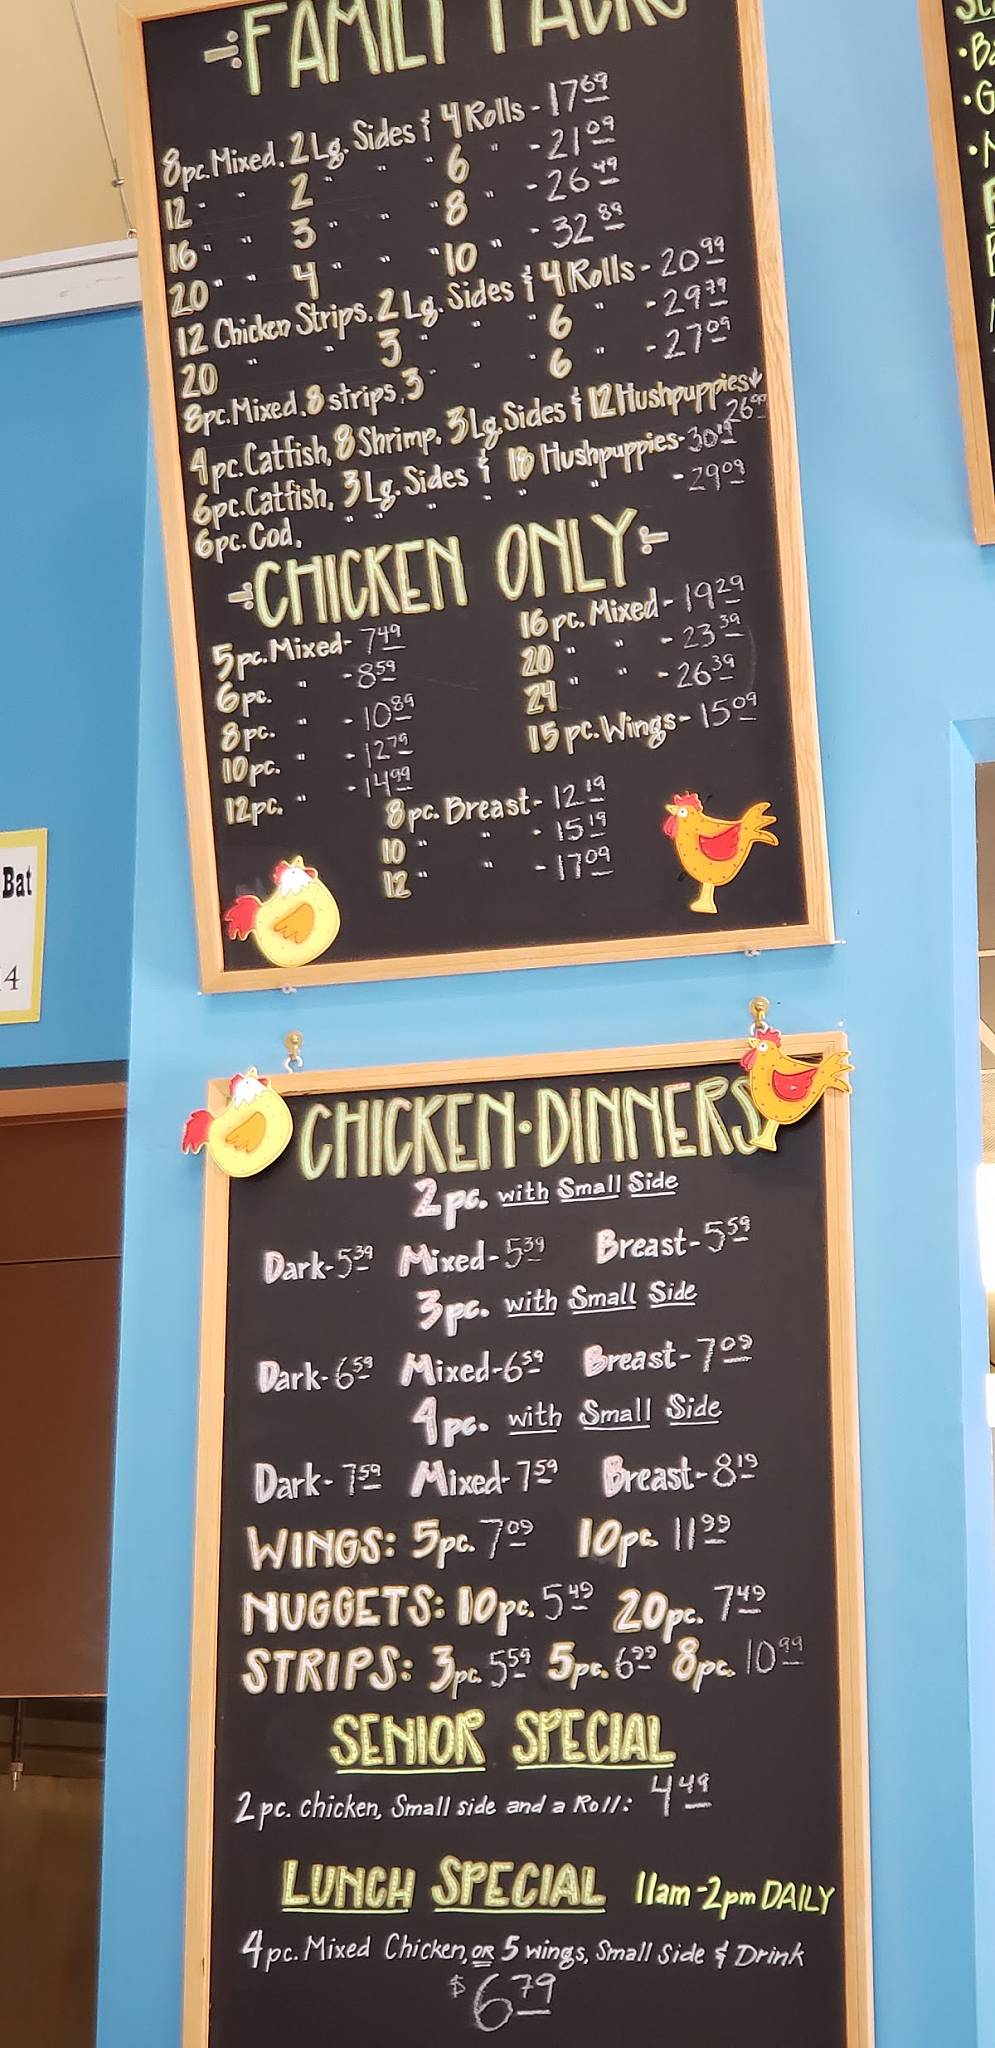 FAMILY PACKS
8pc. Mixed. 2 Lg. Sides & 4 Rolls - 17 69
12 " " 2 " " " 6 " - 21 09
16 " " 3 " " " 8 " - 26 49
20 " " 4 " " " 10 " - 32 89
12 Chicken Strips. 2 Lg. Sides & 4 Rolls - 20 99
20 " " 3 " " " 6 " - 29 79
8pc. Mixed, 8 strips, 3 " " " 6 " - 27 09
4pc. Catfish, 8 Shrimp. 3 Lg. Sides & 12 Hushpuppies
26
6pc. Catfish, 3 Lg. Sides & 18 Hushpuppies - 30 19
6pc. Cod, " " " " " " - 29 09
CHICKEN ONLY
5pc. Mixed - 7 49
6pc. " - 8 59
8pc. " - 10 89
10pc. " - 12 79
12pc. " - 14 99
16pc. Mixed - 19 29
20 " " - 23 39
24 " " - 26 39
15pc. Wings - 15 09
8pc. Breast - 12 19
10 " " - 15 19
12 " " - 17 09
Bat
14
CHICKEN · DINNERS
2pc. with Small Side
Dark - 5 39 Mixed - 5 39 Breast - 5 59
3pc. with Small Side
Dark - 6 59 Mixed - 6 59 Breast - 7 09
4pc. with Small Side
Dark - 7 59 Mixed - 7 59 Breast - 8 19
WINGS: 5pc. 7 09 10pc. 11 99
NUGGETS: 10pc. 5 49 20pc. 7 49
STRIPS: 3pc. 5 59 5pc. 6 99 8pc. 10 99
SENIOR SPECIAL
2pc. chicken, Small side and a Roll: 4 49
LUNCH SPECIAL 11am - 2pm DAILY
4pc. Mixed Chicken, OR 5 wings, Small Side & Drink
$6 79